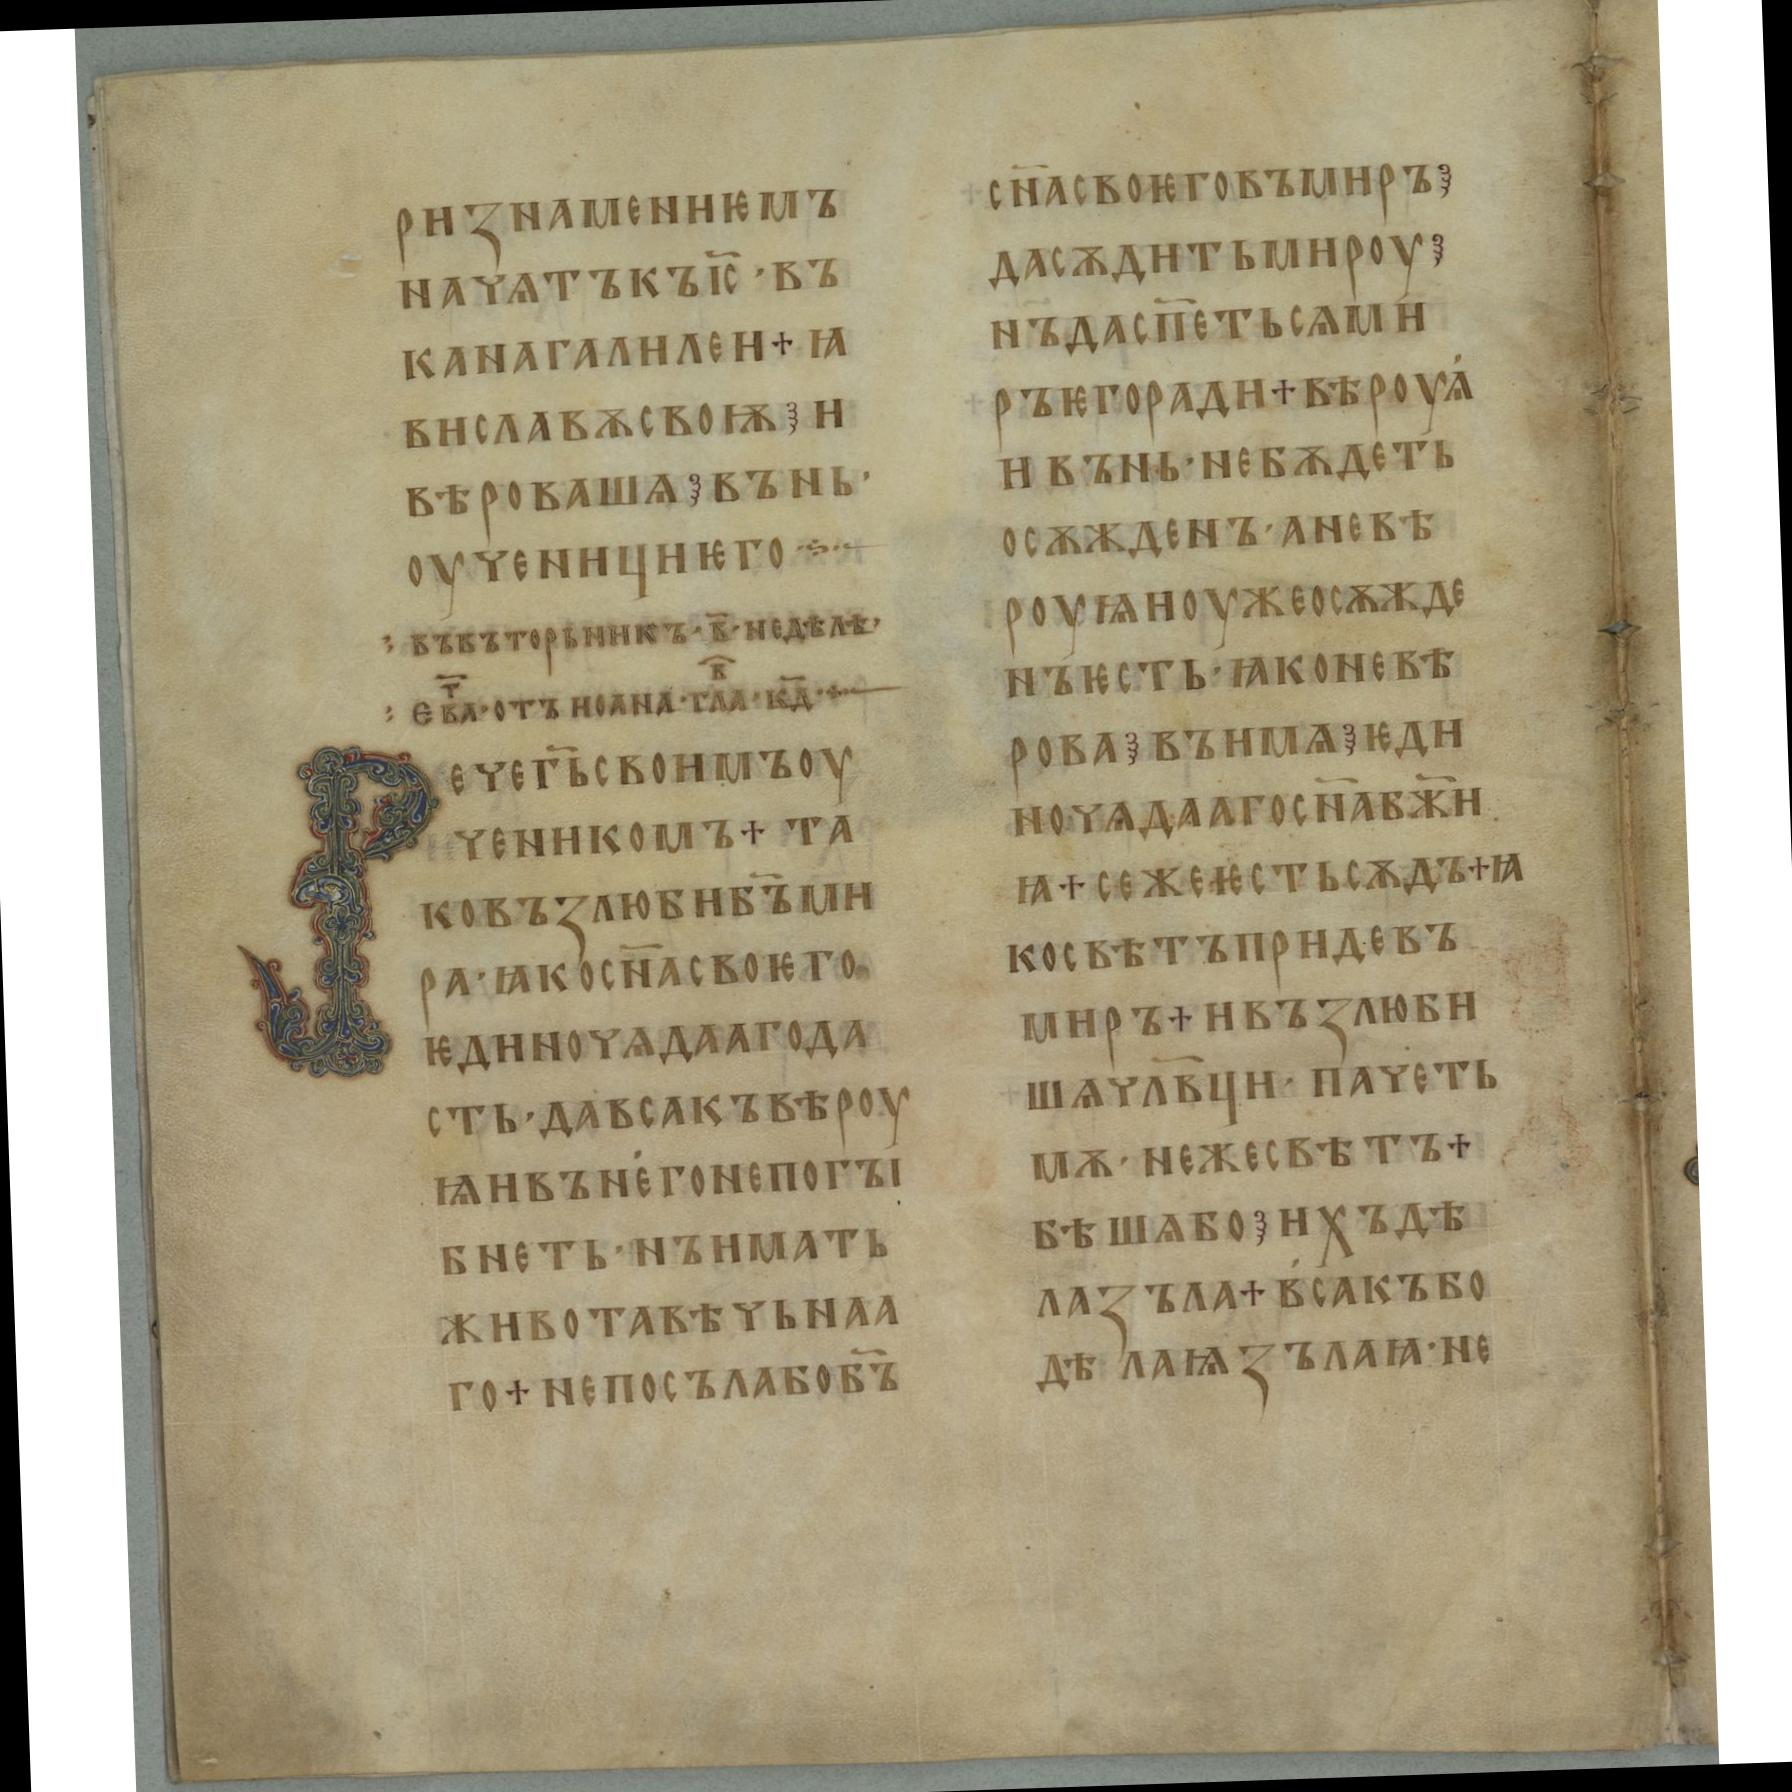 ри знамениѥмъ
начатъкъ іс҃ · въ
кана галилеи + ꙗ
ви славѫ своѭ ꙁ и
вѣровашѧ ꙁ вънь ·
оученици ѥго ·
въ въторьникъ · в҃ · недѣлѣ ·
ев҃а · отъ иоана · гл҃а · кд҃ ·
Рече г҃ь своимъ оу
ченикомъ + та
ко възлюби б҃ъ ми
ра · ꙗко сн҃а своѥго
ѥдиночѧдааго да
сть · да всакъ вѣроу
ѩи въ него не погꙑ
бнеть · нъ имать
живота вѣчьнаа
го + не посъла бо б҃ъ
сн҃а своѥго въ миръ ꙁ
да сѫдить мироу ꙁ
нъ да сп҃еть сѧ ми
ръ ѥго ради + вѣроуѧ
и вънь · не бѫдеть
осѫжденъ · а не вѣ
роуѩи оуже осѫжде
нъ ѥсть · ꙗко не вѣ
рова ꙁ въ имѧ ꙁ ѥди
ночѧдааго сн҃а бж҃и
ꙗ + се же ѥсть сѫдъ + ꙗ
ко свѣтъ приде въ
миръ + и възлюби
шѧ члв҃ци · паче ть
мѫ · неже свѣтъ +
бѣшѧ бо ꙁ ихъ дѣ
ла зъла + всакъ бо
дѣлаѩ зълаꙗ · не